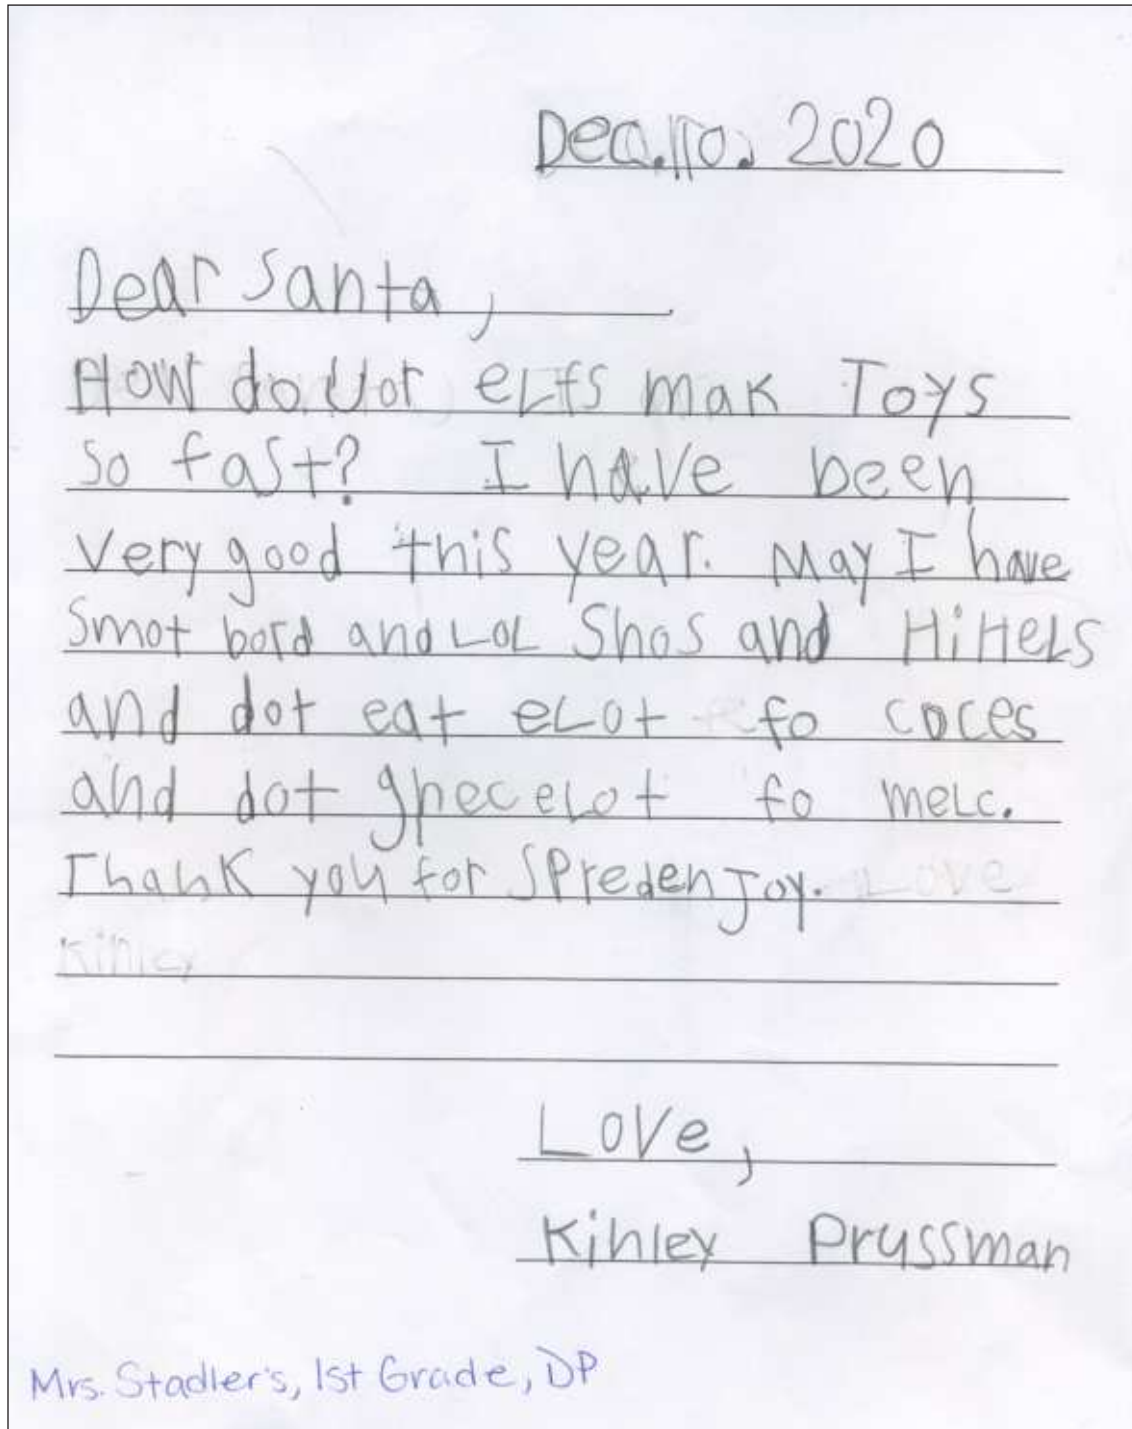 Dec. 10. 2020
Dear Santa,
How do Uor eLfs mak Toys
so fast? I have been
very good this year. May I have
Smot bord and LOL Shos and HiHeLs
and dot eat eLot fo coces
and dot ghec eLot fo meLc.
Thank you for SPreden Joy. Love
Kinley
Love,
Kinley Prussman
Mrs. Stadler's, 1st Grade, DP